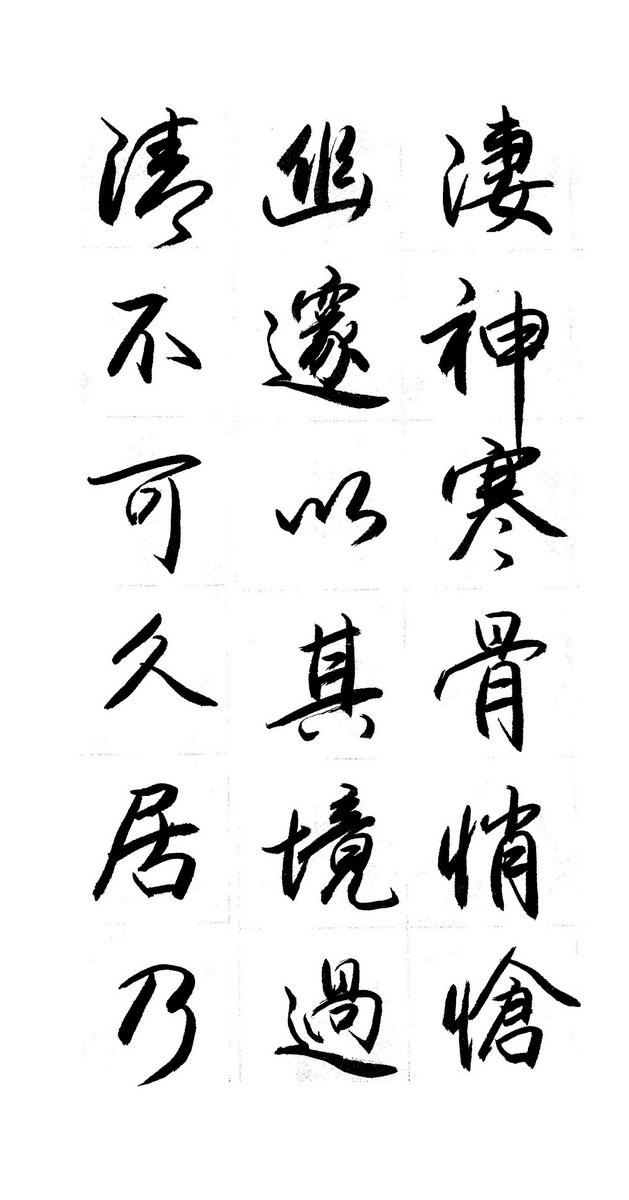 淒神寒骨悄愴
幽邃以其境過
清不可久居乃